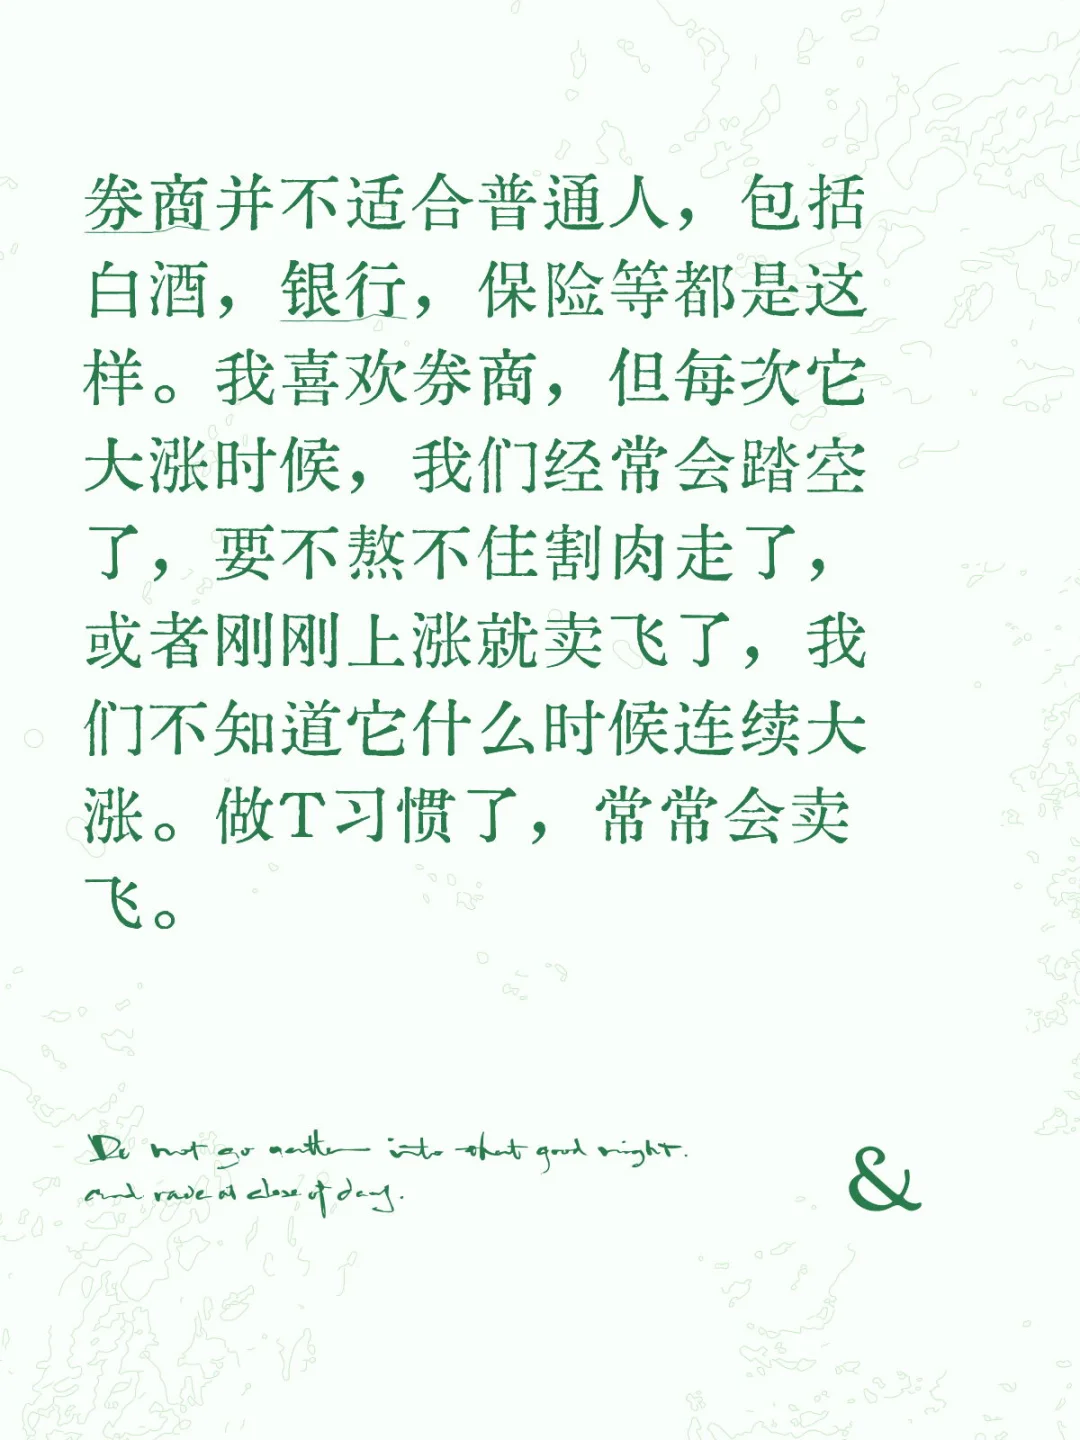 券商并不适合普通人，包括
白酒，银行，保险等都是这
样。我喜欢券商，但每次它
大涨时候，我们经常会踏空
了，要不熬不住割肉走了，
或者刚刚上涨就卖飞了，我
们不知道它什么时候连续大
涨。做T习惯了，常常会卖
飞。
Do not go gentle into that good night.
and rave at close of day.
&